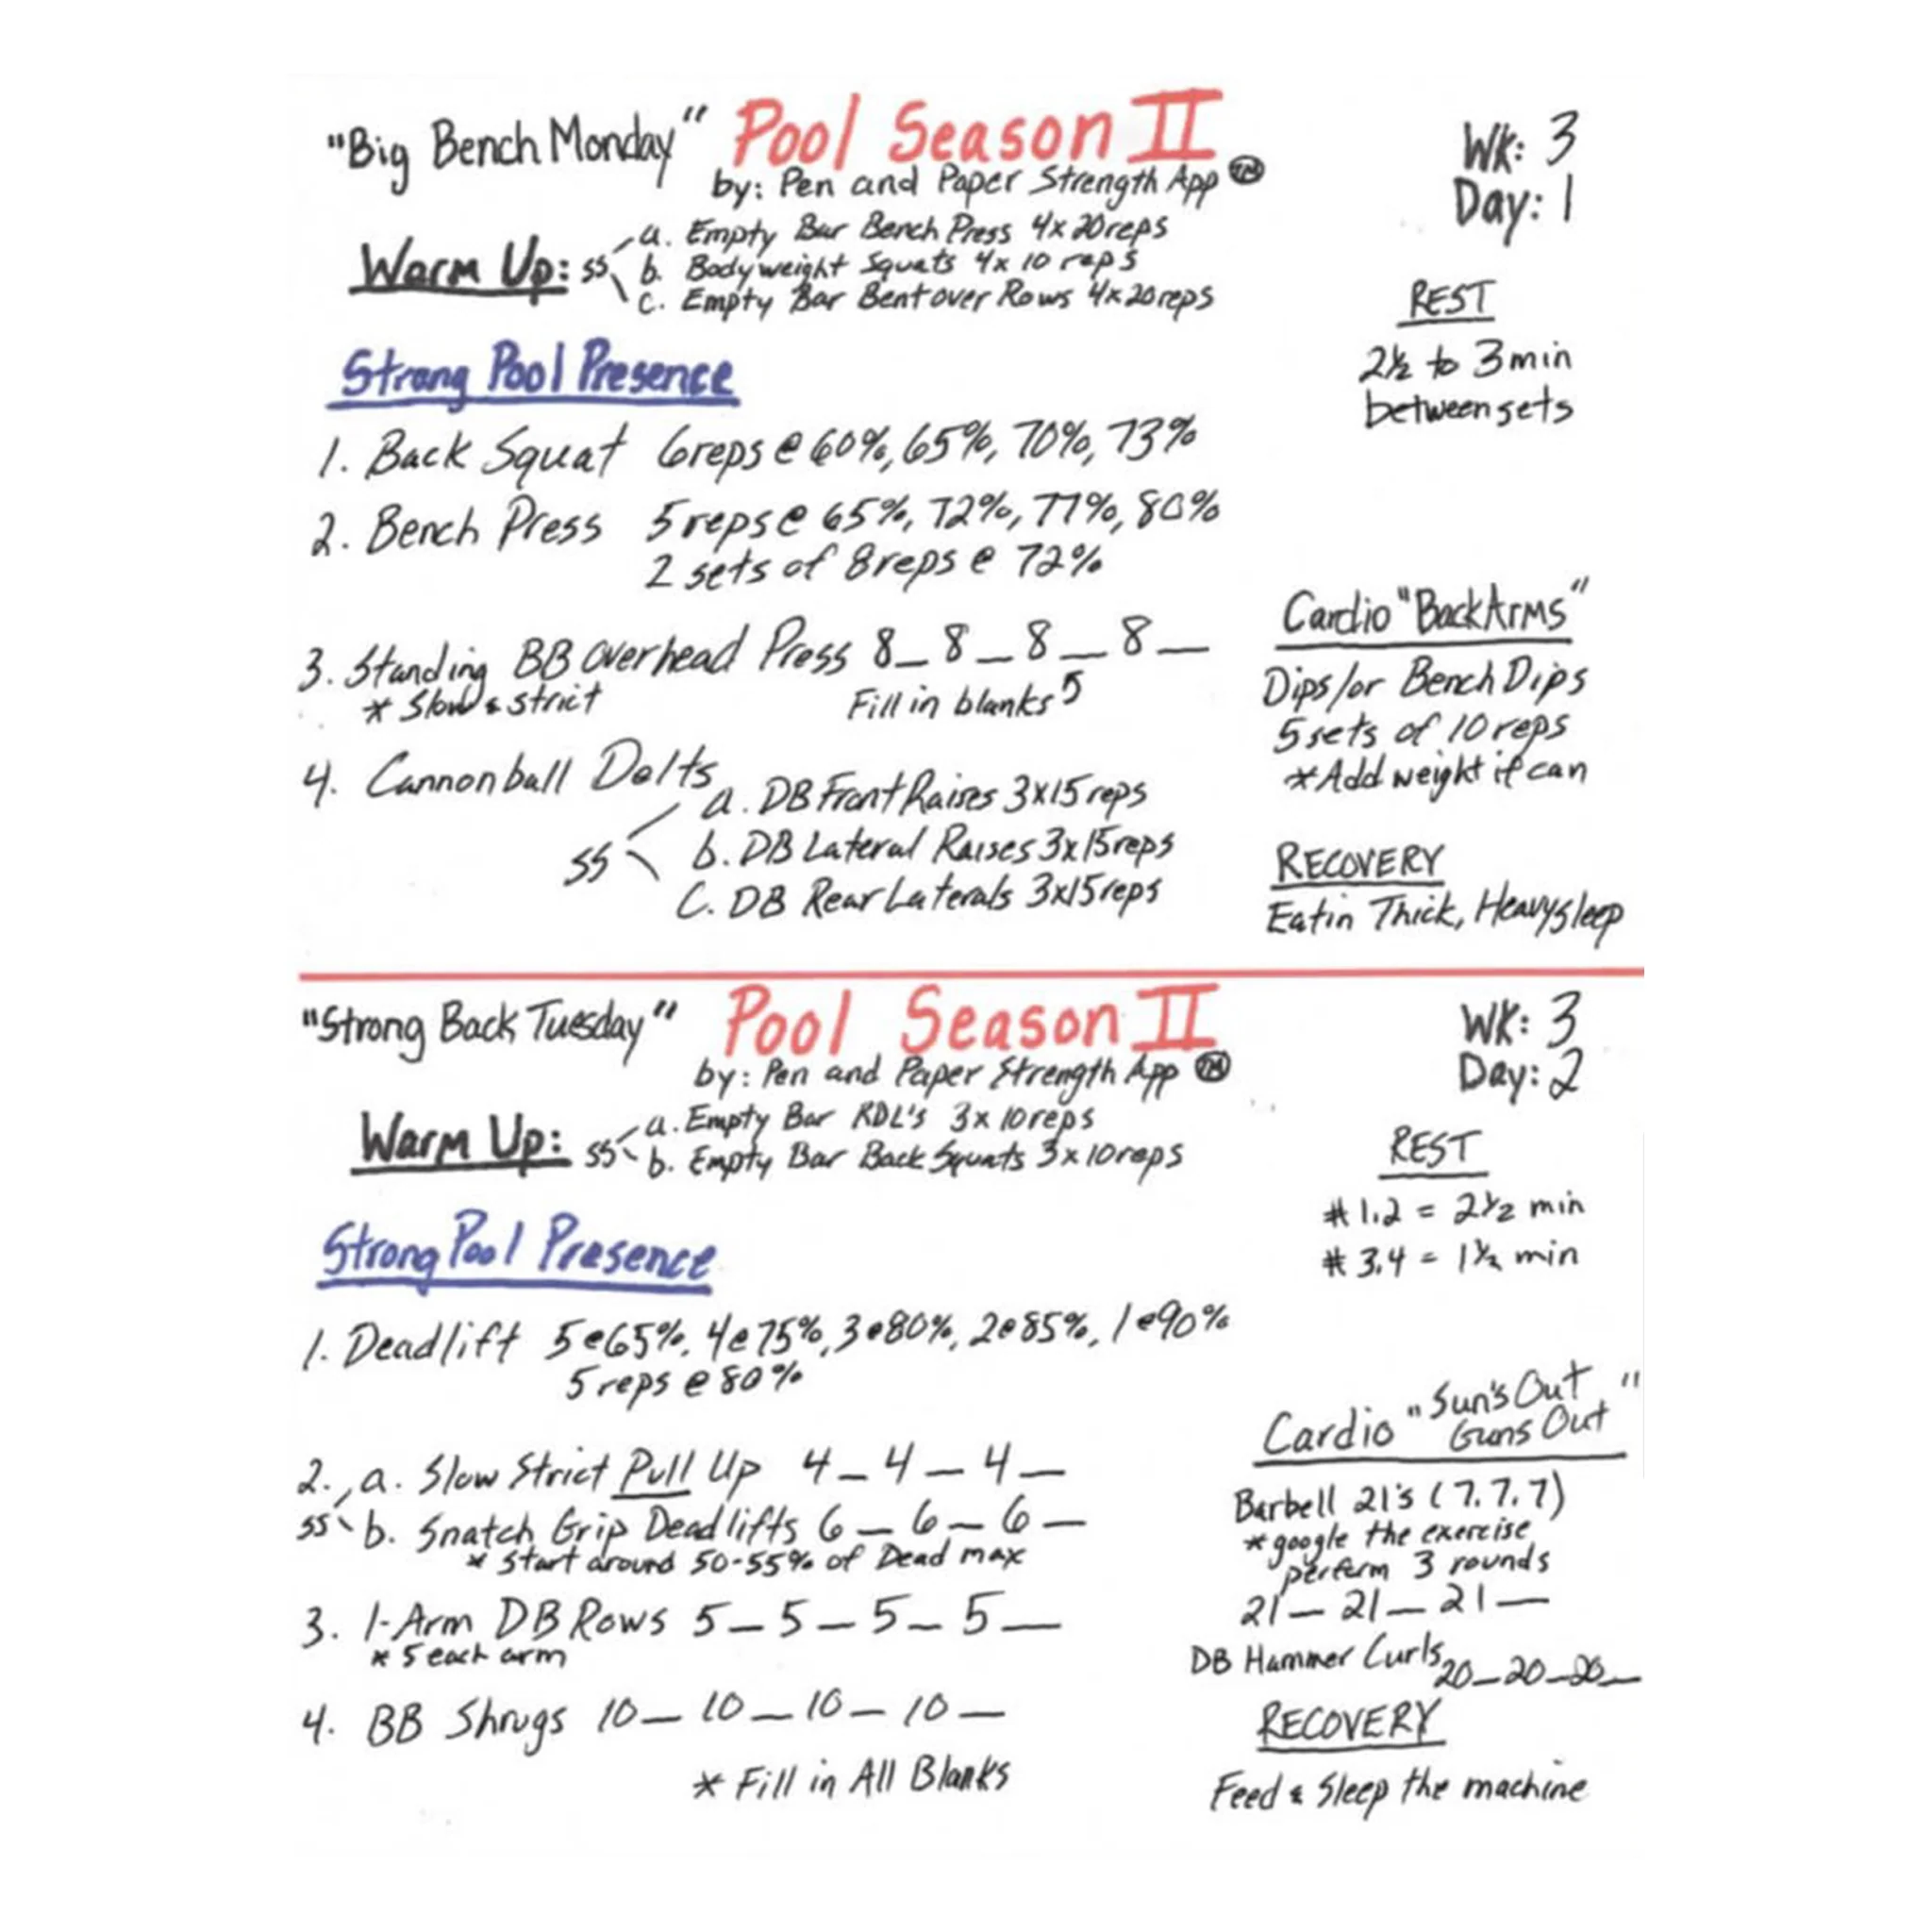 "Big Bench Monday" Pool Season II
by: Pen and Paper Strength App TM
Wk: 3
Day: 1
Warm Up: ss a. Empty Bar Bench Press 4x20reps
b. Bodyweight Squats 4x10 reps
c. Empty Bar Bentover Rows 4x20reps
REST
2½ to 3min
between sets
Strong Pool Presence
1. Back Squat 6reps@60%, 65%, 70%, 73%
2. Bench Press 5reps@65%, 72%, 77%, 80%
2 sets of 8reps@72%
3. Standing BB Overhead Press 8_ 8_ 8_ 8_
* Slow & strict Fill in blanks 5
4. Cannonball Delts
ss a. DB Front Raises 3x15reps
b. DB Lateral Raises 3x15reps
C. DB Rear Laterals 3x15reps
Cardio "BackArms"
Dips/or Bench Dips
5sets of 10reps
*Add weight if can
RECOVERY
Eatin Thick, Heavysleep
"Strong Back Tuesday" Pool Season II
by: Pen and Paper Strength App TM
WK: 3
Day: 2
Warm Up: ss a. Empty Bar RDL's 3x10reps
b. Empty Bar Back Squats 3x10reps
REST
#1.2 = 2½ min
#3.4 = 1½ min
Strong Pool Presence
1. Deadlift 5@65%, 4@75%, 3@80%, 2@85%, 1@90%
5reps@80%
2. a. Slow Strict Pull Up 4_ 4_ 4_
ss b. Snatch Grip Deadlifts 6_ 6_ 6_
* Start around 50-55% of Dead max
3. 1-Arm DB Rows 5_ 5_ 5_ 5_
* 5 each arm
4. BB Shrugs 10_ 10_ 10_ 10_
* Fill in All Blanks
Cardio "Sun's Out
Guns Out"
Barbell 21's (7.7.7)
*google the exercise
perform 3 rounds
21_ 21_ 21_
DB Hammer Curls 20_20_20_
RECOVERY
Feed & Sleep the machine